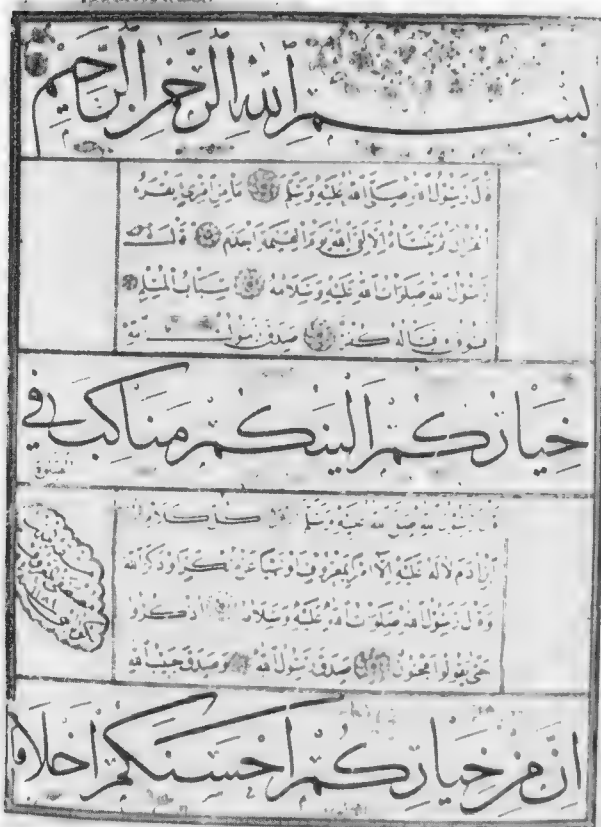 بِسْمِ ٱللهِ ٱلرَّحْمٰنِ ٱلرَّحِيمِ
قَالَ رَسُولُ اللهِ صَلَّى اللهُ عَلَيْهِ وَسَلَّمَ مَا مِنِ امْرِئٍ يَقْرَءُ
الْقُرْاٰنَ ثُمَّ يَنْسَاهُ اِلَّا لَقِيَ اللهَ يَوْمَ الْقِيٰمَةِ اَجْذَمَ قَالَ
رَسُولُ اللهِ صَلَوَاتُ اللهِ عَلَيْهِ وَسَلَامُهُ سِبَابُ الْمُسْلِمِ
فُسُوقٌ وَقِتَالُهُ كُفْرٌ صَدَقَ رَسُولُ اللهِ
خِيَارُكُمْ اَلْيَنُكُمْ مَنَاكِبَ فِي
الصلوة
قَالَ رَسُولُ اللهِ صَلَّى اللهُ عَلَيْهِ وَسَلَّمَ كُلُّ كَلَامِ ابْنِ
اٰدَمَ لَا لَهُ عَلَيْهِ اِلَّا اَمْرًا بِمَعْرُوفٍ اَوْ نَهْيًا عَنْ مُنْكَرٍ اَوْ ذِكْرَ اللهِ
وَقَالَ رَسُولُ اللهِ صَلَوَاتُ اللهِ عَلَيْهِ وَسَلَامُهُ اذْكُرُوا
حَتَّى يَقُولُوا مَجْنُونٌ صَدَقَ رَسُولُ اللهِ وَصَدَقَ حَبِيبُ اللهِ
اِنَّ مِنْ خِيَارِكُمْ اَحْسَنَكُمْ اَخْلَاقًا